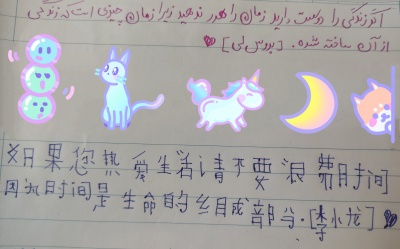 اگر زندگی را دوست دارید زمان را هدر ندهید زیرا زمان چیزی است که زندگی
از آن ساخته شده. [بروس لی]
如果您热爱生活请不要浪费时间
因为时间是生命的组成部分.[李小龙]